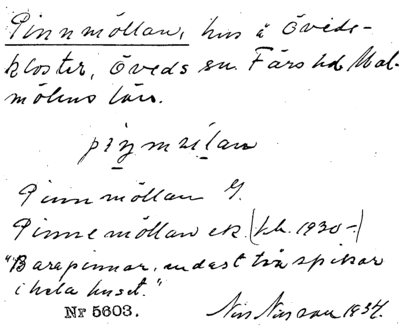 Pinnmöllan, hus å Öveds-
kloster, Öveds sn. Färs hd. Mal-
möhus län.
Pinnmöllan G.
Pinnemöllan ek. (kb. 1930-)
"Bara pinnar, endast två spikar
i hela huset."
Nr 5603. Nils Nilsson 1934.